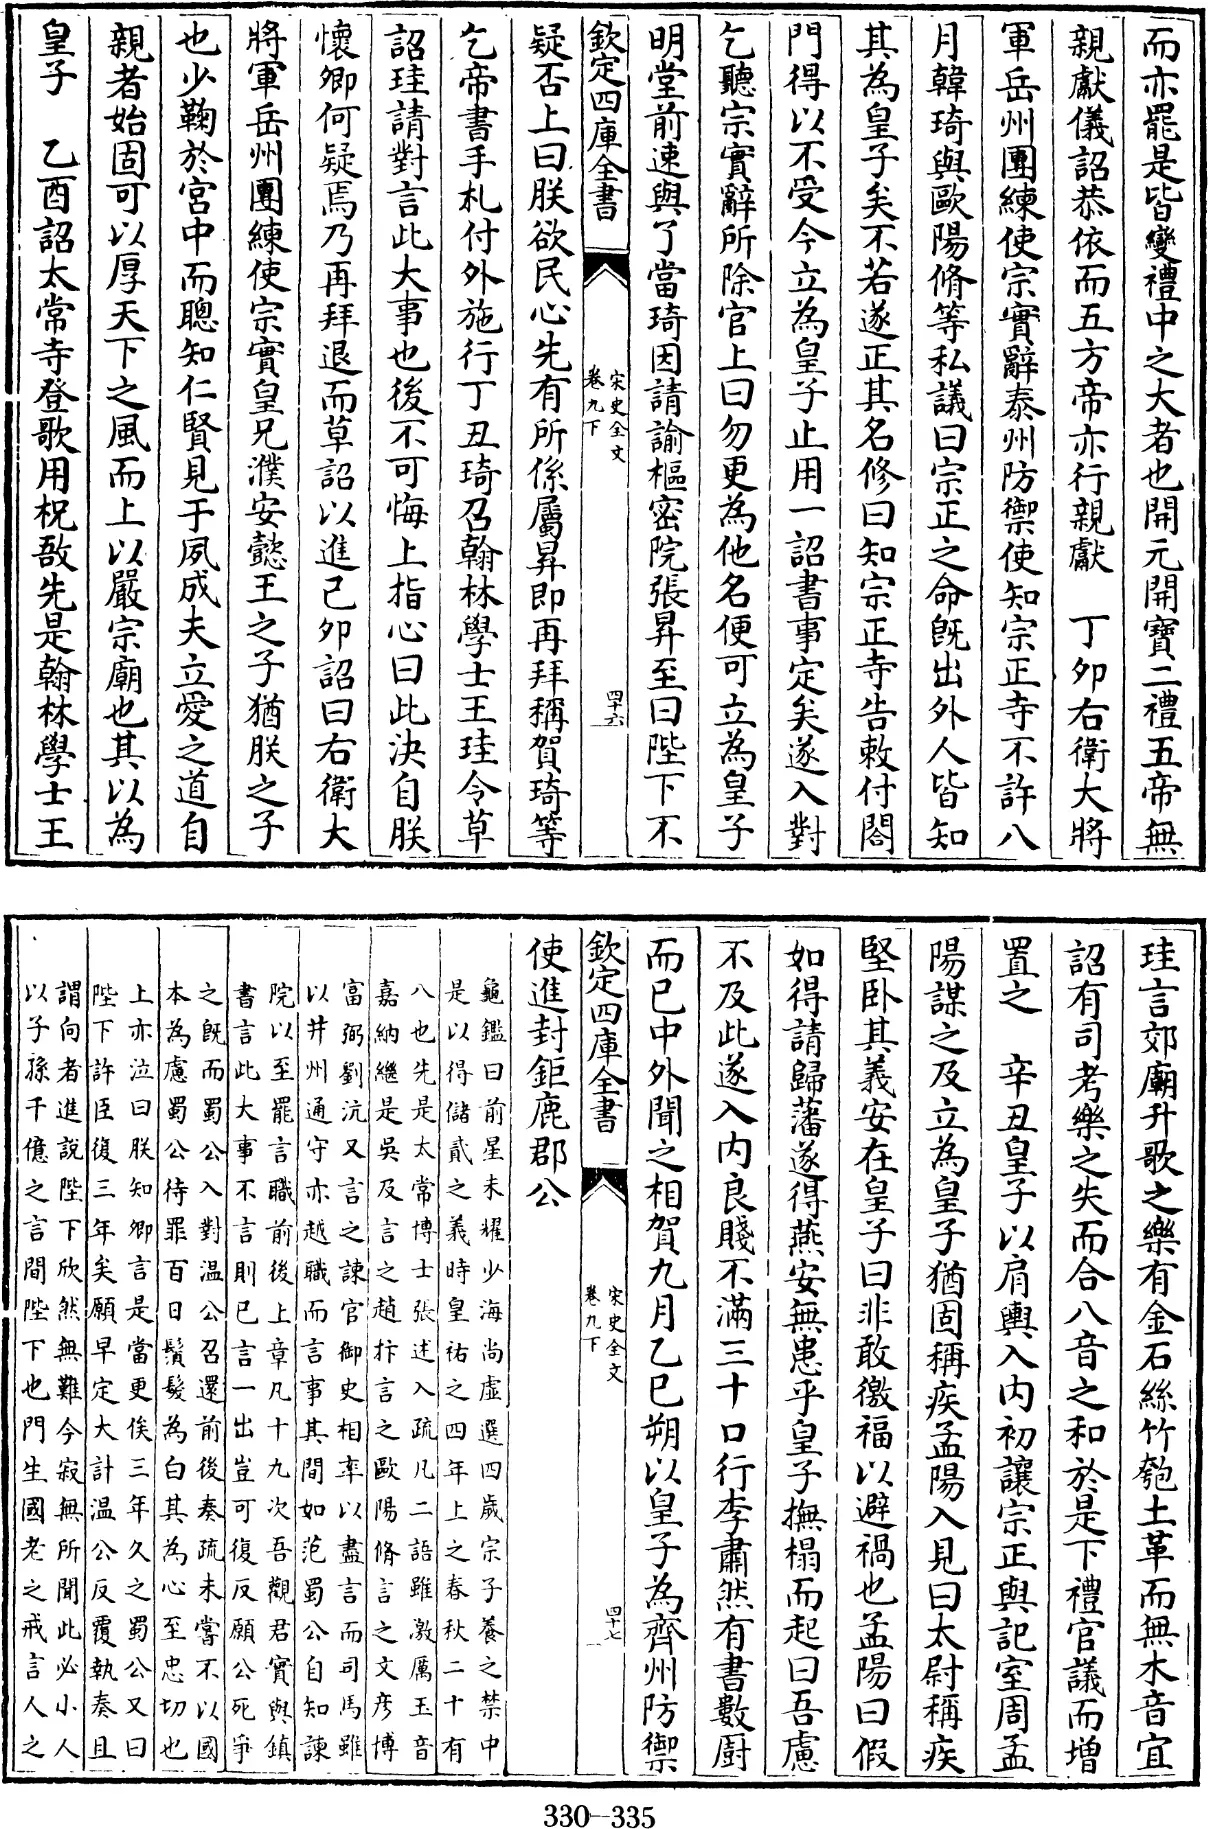 而亦罷是皆變禮中之大者也開元開寶二禮五帝無
親獻儀詔恭依而五方帝亦行親獻　丁卯右衛大將
軍岳州團練使宗實辭泰州防禦使知宗正寺不許八
月韓琦與歐陽脩等私議曰宗正之命既出外人皆知
其為皇子矣不若遂正其名修曰知宗正寺告敕付閤
門得以不受今立為皇子止用一詔書事定矣遂入對
乞聽宗實辭所除官上曰勿更為他名便可立為皇子
明堂前速與了當琦因請諭樞密院張昇至曰陛下不
欽定四庫全書
宋史全文
卷九下
四十六
疑否上曰朕欲民心先有所係屬昇即再拜稱賀琦等
乞帝書手札付外施行丁丑琦召翰林學士王珪令草
詔珪請對言此大事也後不可悔上指心曰此決自朕
懷卿何疑焉乃再拜退而草詔以進己卯詔曰右衛大
將軍岳州團練使宗實皇兄濮安懿王之子猶朕之子
也少鞠於宮中而聰知仁賢見于夙成夫立愛之道自
親者始固可以厚天下之風而上以嚴宗廟也其以為
皇子　乙酉詔太常寺登歌用柷敔先是翰林學士王
珪言郊廟升歌之樂有金石絲竹匏土革而無木音宜
詔有司考樂之失而合八音之和於是下禮官議而增
置之　辛丑皇子以肩輿入内初讓宗正與記室周孟
陽謀之及立為皇子猶固稱疾孟陽入見曰太尉稱疾
堅卧其義安在皇子曰非敢徼福以避禍也孟陽曰假
如得請歸藩遂得燕安無患乎皇子撫榻而起曰吾慮
不及此遂入内良賤不滿三十口行李肅然有書數厨
而已中外聞之相賀九月乙巳朔以皇子為齊州防禦
欽定四庫全書
宋史全文
卷九下
四十七
使進封鉅鹿郡公
龜鑑曰前星未耀少海尚虛選四歲宗子養之禁中
是以得儲貳之義時皇祐之四年上之春秋二十有
八也先是太常博士張述入疏凡二語雖激厲玉音
嘉納繼是吳及言之趙抃言之歐陽脩言之文彦博
富弼劉沆又言之諫官御史相率以盡言而司馬雖
以并州通守亦越職而言事其間如范蜀公自知諫
院以至罷言職前後上章凡十九次吾觀君實與鎮
書言此大事不言則已言一出豈可復反願公死爭
之既而蜀公入對溫公召還前後奏疏未嘗不以國
本為慮蜀公待罪百日鬚髮為白其為心至忠切也
上亦泣曰朕知卿言是當更俟三年久之蜀公又曰
陛下許臣復三年矣願早定大計温公反覆執奏且
謂向者進說陛下欣然無難今寂無所聞此必小人
以子孫千億之言間陛下也門生國老之戒言人之
330-335